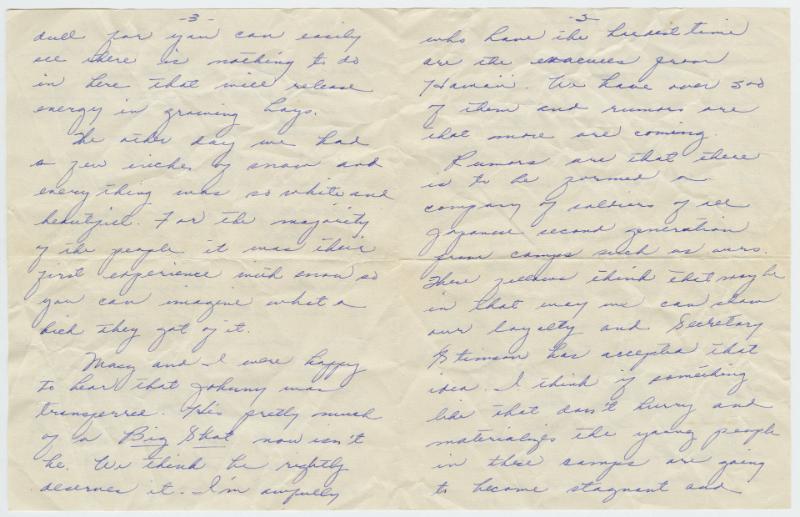 -3-
dull for you can easily
see there is nothing to do
in here that will release
energy in growing boys.
The other day we had
a few inches of snow and
everything was so white and
beautiful. For the majority
of the people it was their
first experience with snow so
you can imagine what a
kick they got of it.
Masy and I were happy
to hear that Johnny was
transferred. He's pretty much
of a Big Shot now isn't
he. We think he rightly
deserves it. I'm awfully
-5-
who have the hardest time
are the evacuees from
Hawaii. We have over 500
of them and rumors are
that more are coming.
Rumors are that there
is to be formed a
company of soldiers of all
Japanese second generation
from camps such as ours.
These fellows think that maybe
in that way we can show
our loyalty and Secretary
Stimson has accepted that
idea. I think if something
like that don't hurry and
materializes the young people
in these camps are going
to become stagnant and